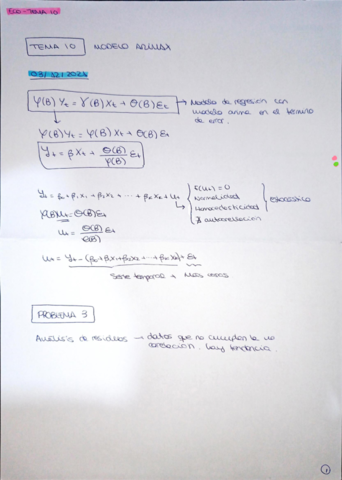 ECO - TEMA 10
TEMA 10 MODELO ARMAX
03/12/2024
φ(B) Yt = γ(B) Xt + Θ(B) Et → Modelo de regresión con
modelo arma en el término
de error.
φ(B) Yt = φ(B) Xt + Θ(B) Et
Yt = β Xt + Θ(B)/φ(B) Et
Yt = β0 + β1 X1 + β2 X2 + ... + βk Xk + Ut → E(Ut) = 0
Normalidad
Homocedasticidad
∄ autocorrelación
φ(B) Ut = Θ(B) Et
Ut = Θ(B)/φ(B) Et
Ut = Yt - (β0 + β1 X1 + β2 X2 + ... + βk Xk) + Et
Serie temporal +
PROBLEMA 3
Análisis de residuos → datos que no cumplen la no
correlación. hay tendencia.
1